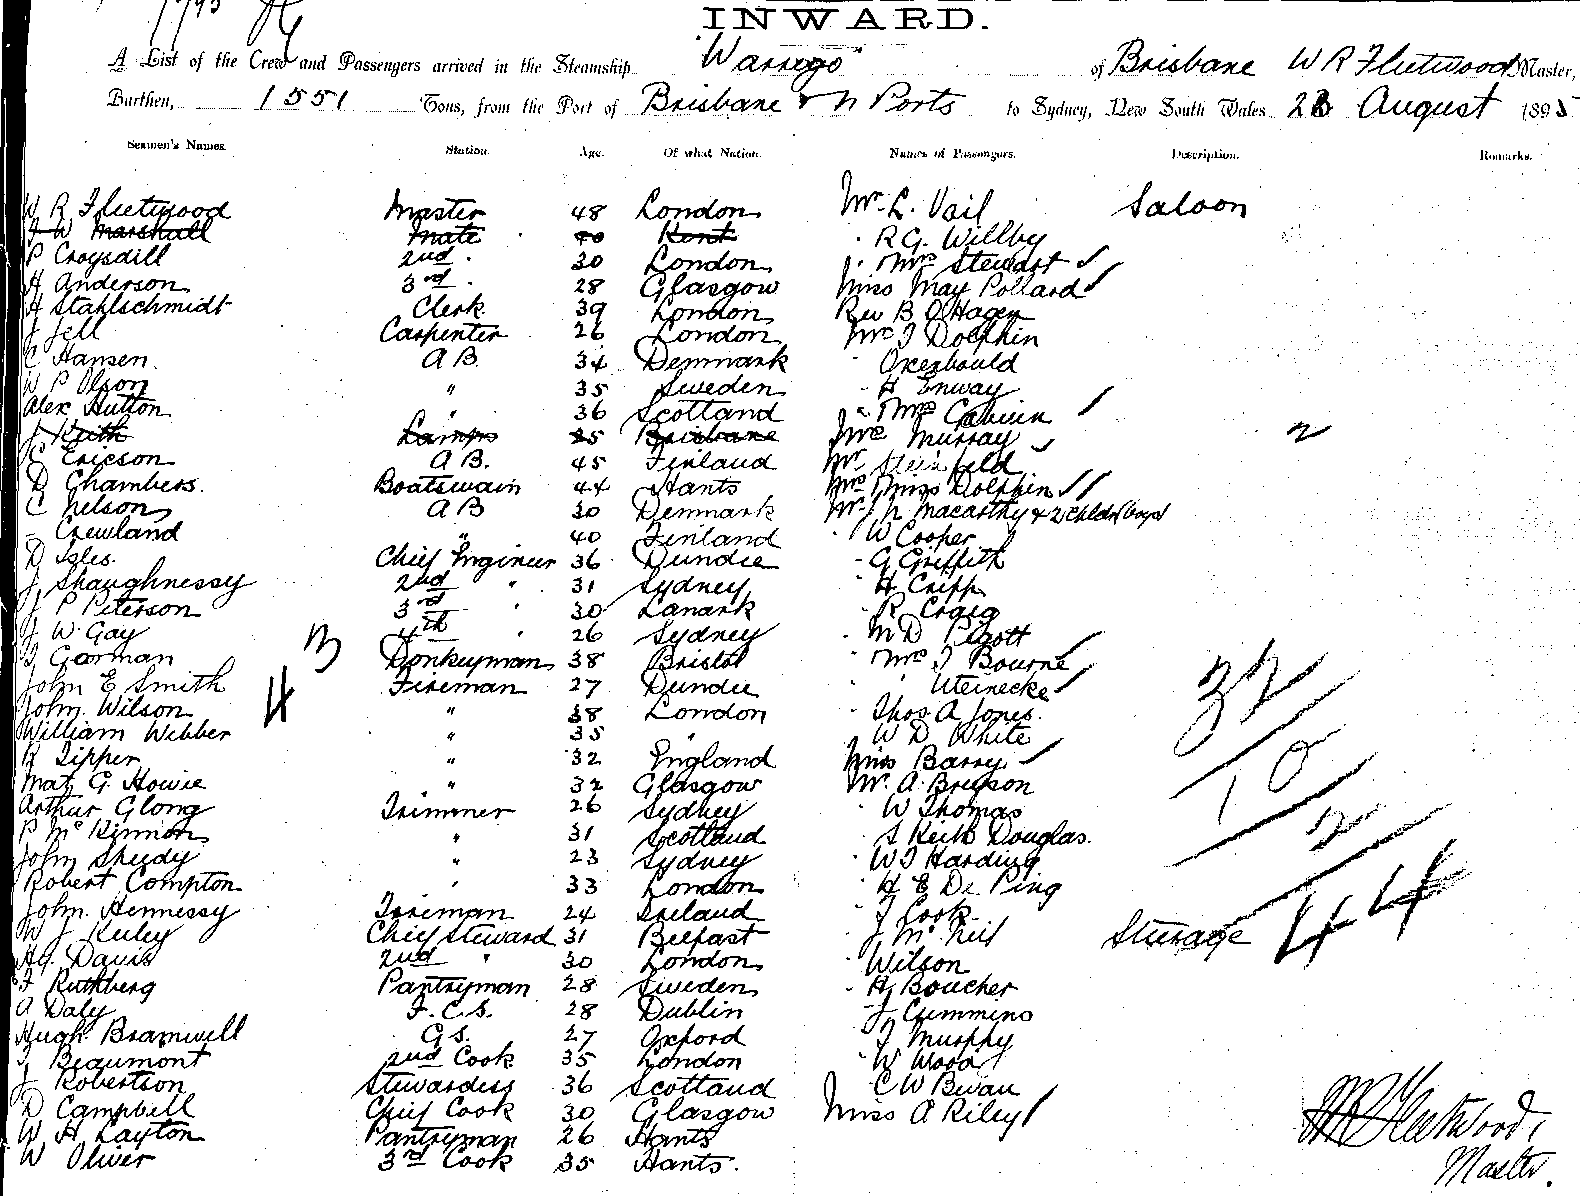 INWARD.
A List of the Crew and Passengers arrived in the Steamship "Warrego" of Brisbane W R Fleetwood Master,
Burthen, 1551 Tons, from the Port of Brisbane & N Ports to Sydney, New South Wales August 1895
Seamen's Names. Station. Age. Of what Nation. Names of Passengers. Description. Remarks.
W R Fleetwood Master 48 London Mr L. Vail Saloon
W Marshall Mate 40 Kent " R G. Willby
P Croysdill 2nd " 30 London " Mrs Stewart ✓
H Anderson 3rd " 28 Glasgow Miss May Pollard ✓
H Stahlschmidt Clerk 39 London Rev B O'Hagen
J Jell Carpenter 26 London Mr J Dolphin
C Hansen A B. 34 Denmark " Oxenbould
W P Olson " 35 Sweden " H Inway
Alex Hutton " 36 Scotland " Mrs ✓
J Keith Lamps 25 Brisbane Murray ✓ 2
C Ericson A B. 45 Finland Mr
D Chambers. Boatswain 44 Hants Mrs Miss Dolphin ✓✓
C Nelson A B 30 Denmark Mr J N Macarthy & 2 childn (boys)
- Crewland " 40 Finland " W Cooper
D Isles. Chief Engineer 36 Dundee " G Griffith
J Shaughnessy 2nd " 31 Sydney " H Cripp
J P Peterson 3rd " 30 Lanark " R Craig
J W Gay 4th " 26 Sydney " M D Pigott
J Gorman Donkeyman 38 Bristol " Mrs J Bourne ✓
John E Smith Fireman 27 Dundee " Uteinecke ✓
John Wilson " 38 London " Thos A Jones.
William Webber " 35 " " W D White
R Tipper " 32 England Miss Barry ✓
Mat G Howie " 32 Glasgow Mr A Bryson
Arthur Glong Trimmer 26 Sydney " W Thomas
P McKinnon " 31 Scotland " S Keith Douglas.
John Sheedy " 23 Sydney " W J Harding
Robert Compton " 33 London " H E De Ping
John Hennessy Fireman 24 Ireland " J Cook
W J Kuley Chief Steward 31 Belfast J McNeil Steerage 44
Hy. Davis 2nd " 30 London " Wilson
F Ruthberg Pantryman 28 Sweden " H Boucher
A Daly F. C. S. 28 Dublin J Cummino
Hugh Bramwell G S. 27 Oxford " J Murphy
J Beaumont 2nd Cook 35 London " W Wood
J Robertson Stewardess 36 Scotland C W Bevan
D Campbell Chief Cook 30 Glasgow Miss A Riley ✓
W H Layton Pantryman 26 Hants
W Oliver 3rd Cook 35 Hants.
32
10
2
W R Fleetwood,
Master.